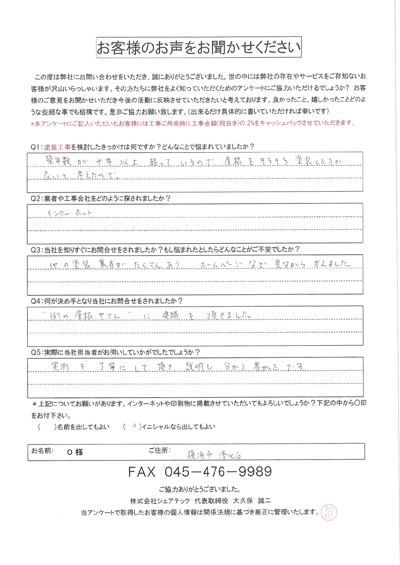 お客様のお声をお聞かせください
この度は弊社にお問い合わせをいただき、誠にありがとうございます。世の中には弊社の存在やサービスをご存知ないお
客様が沢山いらっしゃいます。その方たちに弊社をよく知っていただくためのアンケートにご協力いただけるでしょうか? お
客様のご意見をお聞かせいただき今後の活動に反映させていただきたいと考えております。良かったこと、嬉しかったことどのよ
うな些細な事でも結構です。是非ご協力お願い致します。(出来るだけ具体的に書いていただければ幸いです)
*本アンケートにご記入いただいたお客様には工事ご用命時に工事金額(税抜き)の2%をキャッシュバックさせていただきます。
Q1:塗装工事を検討したきっかけは何ですか?どんなことで悩まれていましたか?
築年数が十年以上経っているので屋根をそろそろ塗装した方が
良いと考えたので。
Q2:業者や工事会社をどのように探されましたか?
インターネット
Q3:当社を知りすぐにお問合せをされましたか?もし悩まれたとしたらどんなことがご不安でしたか?
他の塗装業者がたくさんあり ホームページなど見ながら 考えました。
Q4:何が決め手となり当社にお問合せをされましたか?
"街の屋根やさん"に連絡を頂きました。
Q5:実際に当社担当者がお伺いしていかがでしたでしょうか?
実測を丁寧にして頂き 説明も分かり易かったです
*上記についてお願いがあります。インターネットや印刷物に掲載させていただいてもよろしいでしょうか?下記の中から〇印
をお付下さい。
( )名前を出してもよい ( ○ )イニシャルなら出してもよい
お名前: O 様 ご住所: 横浜市港北区
FAX 045-476-9989
ご協力ありがとうございました。
株式会社シェアテック 代表取締役 大久保 誠二
当アンケートで取得したお客様の個人情報は関係法規に基づき厳正に管理いたします。